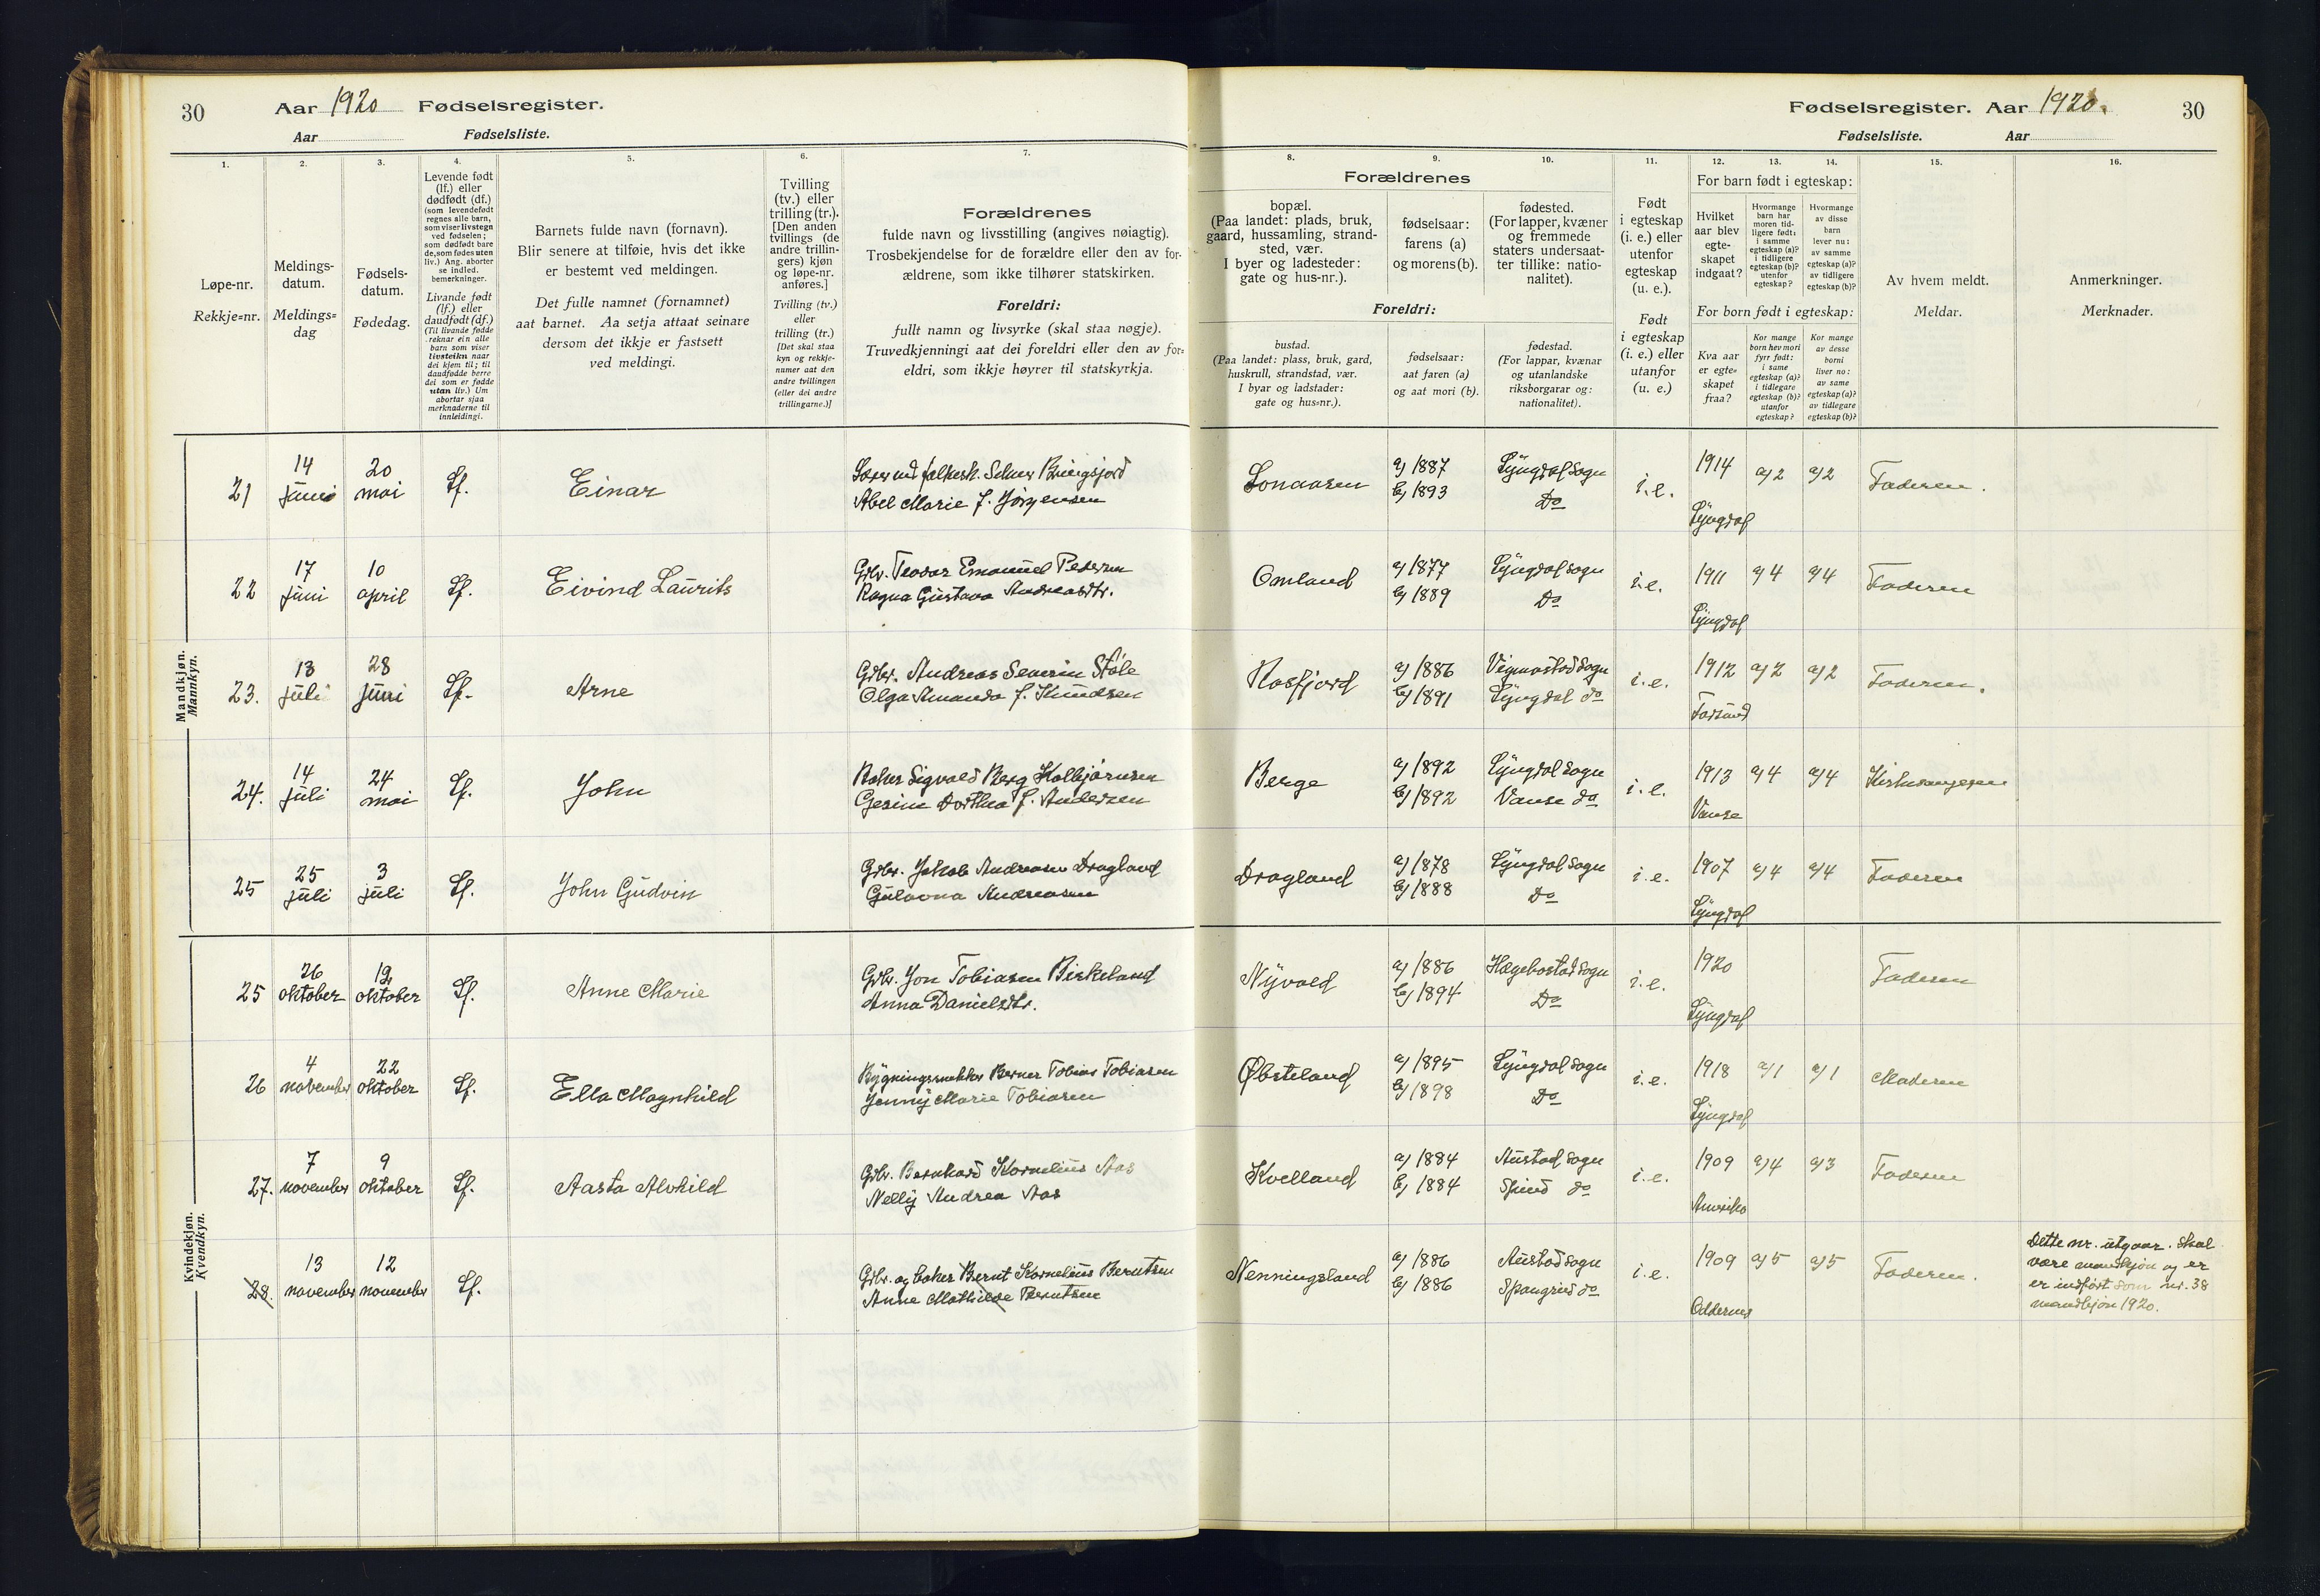 30
Aar 1920 Fødselsregister.
Aar Fødselsliste.
Fødselsregister. Aar 1920.
30
Fødselsliste. Aar
1. 2. 3. 4. 5. 6. 7.
Løpe-nr.
Rekkje=nr.
Meldings-
datum.
Meldings=
dag
Fødsels-
datum.
Fødedag.
Levende født
(lf.) eller
dødfødt (df.)
(som levendefødt
regnes alle barn,
som viser livstegn
ved fødselen;
som dødfødt bare
de, som fødes uten
liv.) Ang. aborter
se indled.
bemerkninger.
Livande født
(lf.) eller
daudfødt (df.)
(Til livande fødde
reknar ein alle
barn som viser
livsteikn naar
dei kjem til; til
daudfødde berre
dei som er fødde
utan liv.) Um
abortar sjaa
merknaderne til
innleidingi.
Barnets fulde navn (fornavn).
Blir senere at tilføie, hvis det ikke
er bestemt ved meldingen.
Det fulle namnet (fornamnet)
aat barnet. Aa setja attaat seinare
dersom det ikkje er fastsett
ved meldingi.
Tvilling
(tv.) eller
trilling (tr.).
[Den anden
tvillings (de
andre trillin-
gers) kjøn
og løpe-nr.
anføres.]
Tvilling (tv.)
eller
trilling (tr.)
[Det skal staa
kyn og rekkje-
numer aat den
andre tvillingen
(eller dei andre
trillingarne.)]
Forældrenes
fulde navn og livsstilling (angives nøiagtig).
Trosbekjendelse for de forældre eller den av for-
ældrene, som ikke tilhører statskirken.
Foreldri:
fullt namn og livsyrke (skal staa nøgje).
Truvedkjenningi aat dei foreldri eller den av for=
eldri, som ikkje høyrer til statskyrkja.
8. 9. 10. 11. 12. 13. 14. 15. 16.
Forældrenes
bopæl.
(Paa landet: plads, bruk,
gaard, hussamling, strand-
sted, vær.
I byer og ladesteder:
gate og hus-nr.).
fødselsaar:
farens (a)
og morens (b).
fødested.
(For lapper, kvæner
og fremmede
staters undersaat-
ter tillike: natio-
nalitet).
Foreldri:
bustad.
(Paa landet: plass, bruk, gard,
huskrull, strandstad, vær.
I byar og ladstader:
gate og hus=nr.).
fødselsaar:
aat faren (a)
og aat mori (b).
fødestad.
(For lappar, kvænar
og utanlandske
riksborgarar og:
nationalitet).
Født
i egteskap
(i. e.) eller
utenfor
egteskap
(u. e.).
Født
i egteskap
(i. e.) eller
utanfor
(u. e.)
For barn født i egteskap:
Hvilket
aar blev
egte-
skapet
indgaat?
Hvormange
barn har
moren tid-
ligere født:
i samme
egteskap (a)?
i tidligere
egteskap (b)?
utenfor
egteskap?
Hvormange
av disse
barn
lever nu:
av samme
egteskap (a)?
av tidligere
egteskap (b)?
For born født i egteskap:
Kva aar
er egte=
skapet
fraa?
Kor mange
born hev mori
fyrr født:
i same
egteskap (a)?
i tidlegare
egteskap (b)?
utanfor
egteskap?
Kor mange
av desse
borni
liver no:
av same
egteskap (a)?
av tidlegare
egteskap (b)?
Av hvem meldt.
Meldar.
Anmerkninger.
Merknader.
Mandkjøn.
Mannkyn.
21 14 juni 20 mai Lf. Einar
Lærer ved folkesk. Selmer Bringsjord
Abel Marie f. Jørgensen
Lonaasen a) 1887 b) 1893 Lyngdal sogn Do i.e. 1914 Lyngdal a) 2 a) 2 Faderen.
22 17 juni 10 april Lf. Eivind Laurits
Grbr. Teodor Emanuel Pedersen
Ragna Gustava Andreasdtr.
Omland a) 1877 b) 1889 Lyngdal sogn Do i.e. 1911 Lyngdal a) 4 a) 4 Faderen
23. 13 juli 28 juni Lf. Arne
Grbr. Andreas Severin Støle
Olga Amanda f. Knudsen
Rosfjord a) 1886 b) 1891 Vigmostad sogn Lyngdal do i.e. 1912 Farsund a) 2 a) 2 Faderen.
24. 14 juli 24 mai Lf. John
Baker Sigvald Berg Kolbjørnsen
Gesine Dorthea f. Andersen
Berge a) 1892 b) 1892 Lyngdal sogn Vanse do i.e. 1913 Vanse a) 4 a) 4 Kirkesangeren
25 25 juli 3 juli Lf. John Gudvin
Grbr. Jakob Andreasen Dragland
Gulovna Andreasen
Dragland a) 1878 b) 1888 Lyngdal sogn Do i.e. 1907 Lyngdal a) 4 a) 4 Faderen
Kvindekjøn.
Kvendkyn.
25 26 oktober 12 oktober Lf. Anne Marie
Grbr. Jon Tobiasen Birkeland
Anna Danielsdtr.
Nyvold a) 1886 b) 1894 Hægebostad sogn Do i.e. 1920 Lyngdal Faderen
26 4 november 22 oktober Lf. Ella Magnhild
Bygningssnekker Berner Tobias Tobiasen
Jenny Marie Tobiasen
Øbsteland a) 1895 b) 1898 Lyngdal sogn Do i.e. 1918 Lyngdal a) 1 a) 1 Moderen
27. 7 november 9 oktober Lf. Aasta Alvhild
Grbr. Bernhard Kornelius Aas
Nelly Andrea Aas
Kvelland a) 1884 b) 1884 Austad sogn Spind do i.e. 1909 Amerika a) 4 a) 3 Faderen
28. 13 november 12 november Lf.
Grbr. og baker Bernt Kornelius Berntsen
Anne Mathilde Berntsen
Nenningsland a) 1886 b) 1886 Austad sogn Spangreid do i.e. 1909 Oddernes a) 5 a) 5 Faderen.
Dette nr. utgaar. Skal
være mandkjøn og er
er indført som nr. 38
mandkjøn 1920.